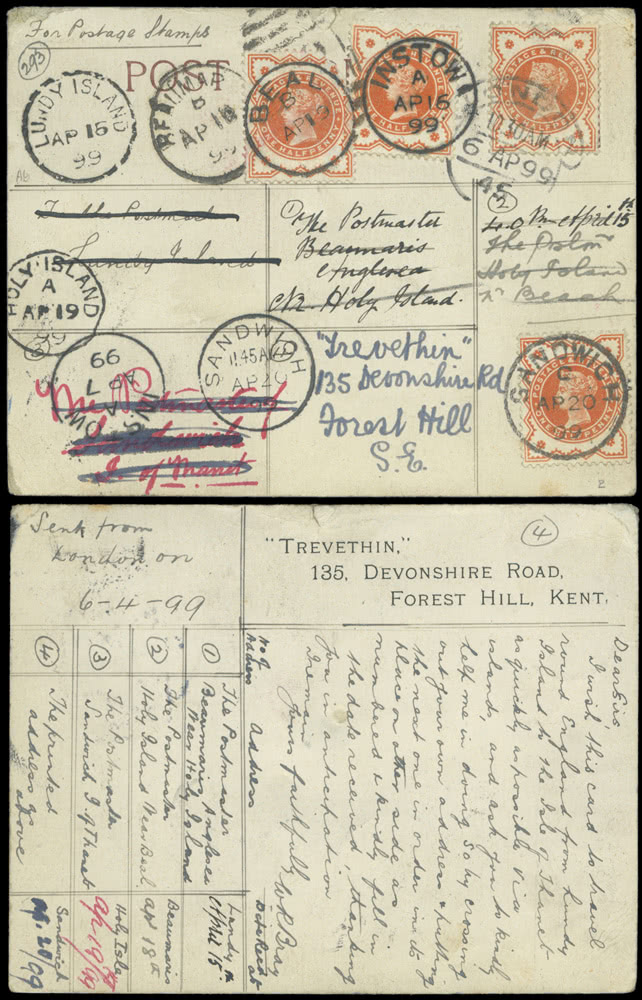 For Postage Stamps
293
POST
LUNDY ISLAND
AP 15
99
BEAUMARIS
B
AP 18
99
BEAL
B
AP 19
99
INSTOW
A
AP 15
99
11.10 AM
6 AP 99
45
POSTAGE & REVENUE
ONE HALFPENNY
POSTAGE & REVENUE
ONE HALFPENNY
POSTAGE & REVENUE
ONE HALFPENNY
A6
To the Postmaster
Lundy Island
①
The Postmaster
Beaumaris
Anglesea
Nr Holy Island.
②
April 15th
The Postmr
Holy Island
Nr Beach
HOLY ISLAND
A
AP 19
99
③
The Postmaster
Sandwich
I. of Thanet
INSTOW
A
AP 7
99
SANDWICH
11.45 AM
AP 20
99
"Trevethin"
135 Devonshire Rd
Forest Hill
S.E.
SANDWICH
C
AP 20
99
POSTAGE & REVENUE
ONE HALFPENNY
2
Sent from
London on
6-4-99
④
"TREVETHIN,"
135, DEVONSHIRE ROAD,
FOREST HILL, KENT.
Dear Sir,
I wish this card to travel
round England from Lundy
Island to the Isle of Thanet
as quickly as possible via
island, and ask you to kindly
help me in doing so by crossing
out your own address & putting
the next one in order in its
place on other side as
numbered & kindly fill in
the date received, thanking
you in anticipation
I remain
Yours faithfully W R Bray
No of Address
Address
Date Recd at
①
The Postmaster
Beaumaris, Anglesea
Near Holy Island
Lundy
April 15th
②
The Postmaster
Holy Island Near Beal.
Beaumaris
Apl 18th
③
The Postmaster
Sandwich, I. of Thanet
Holy Isle
Ap 19/99
④
The printed
address as
above
Sandwich
Ap. 20/99